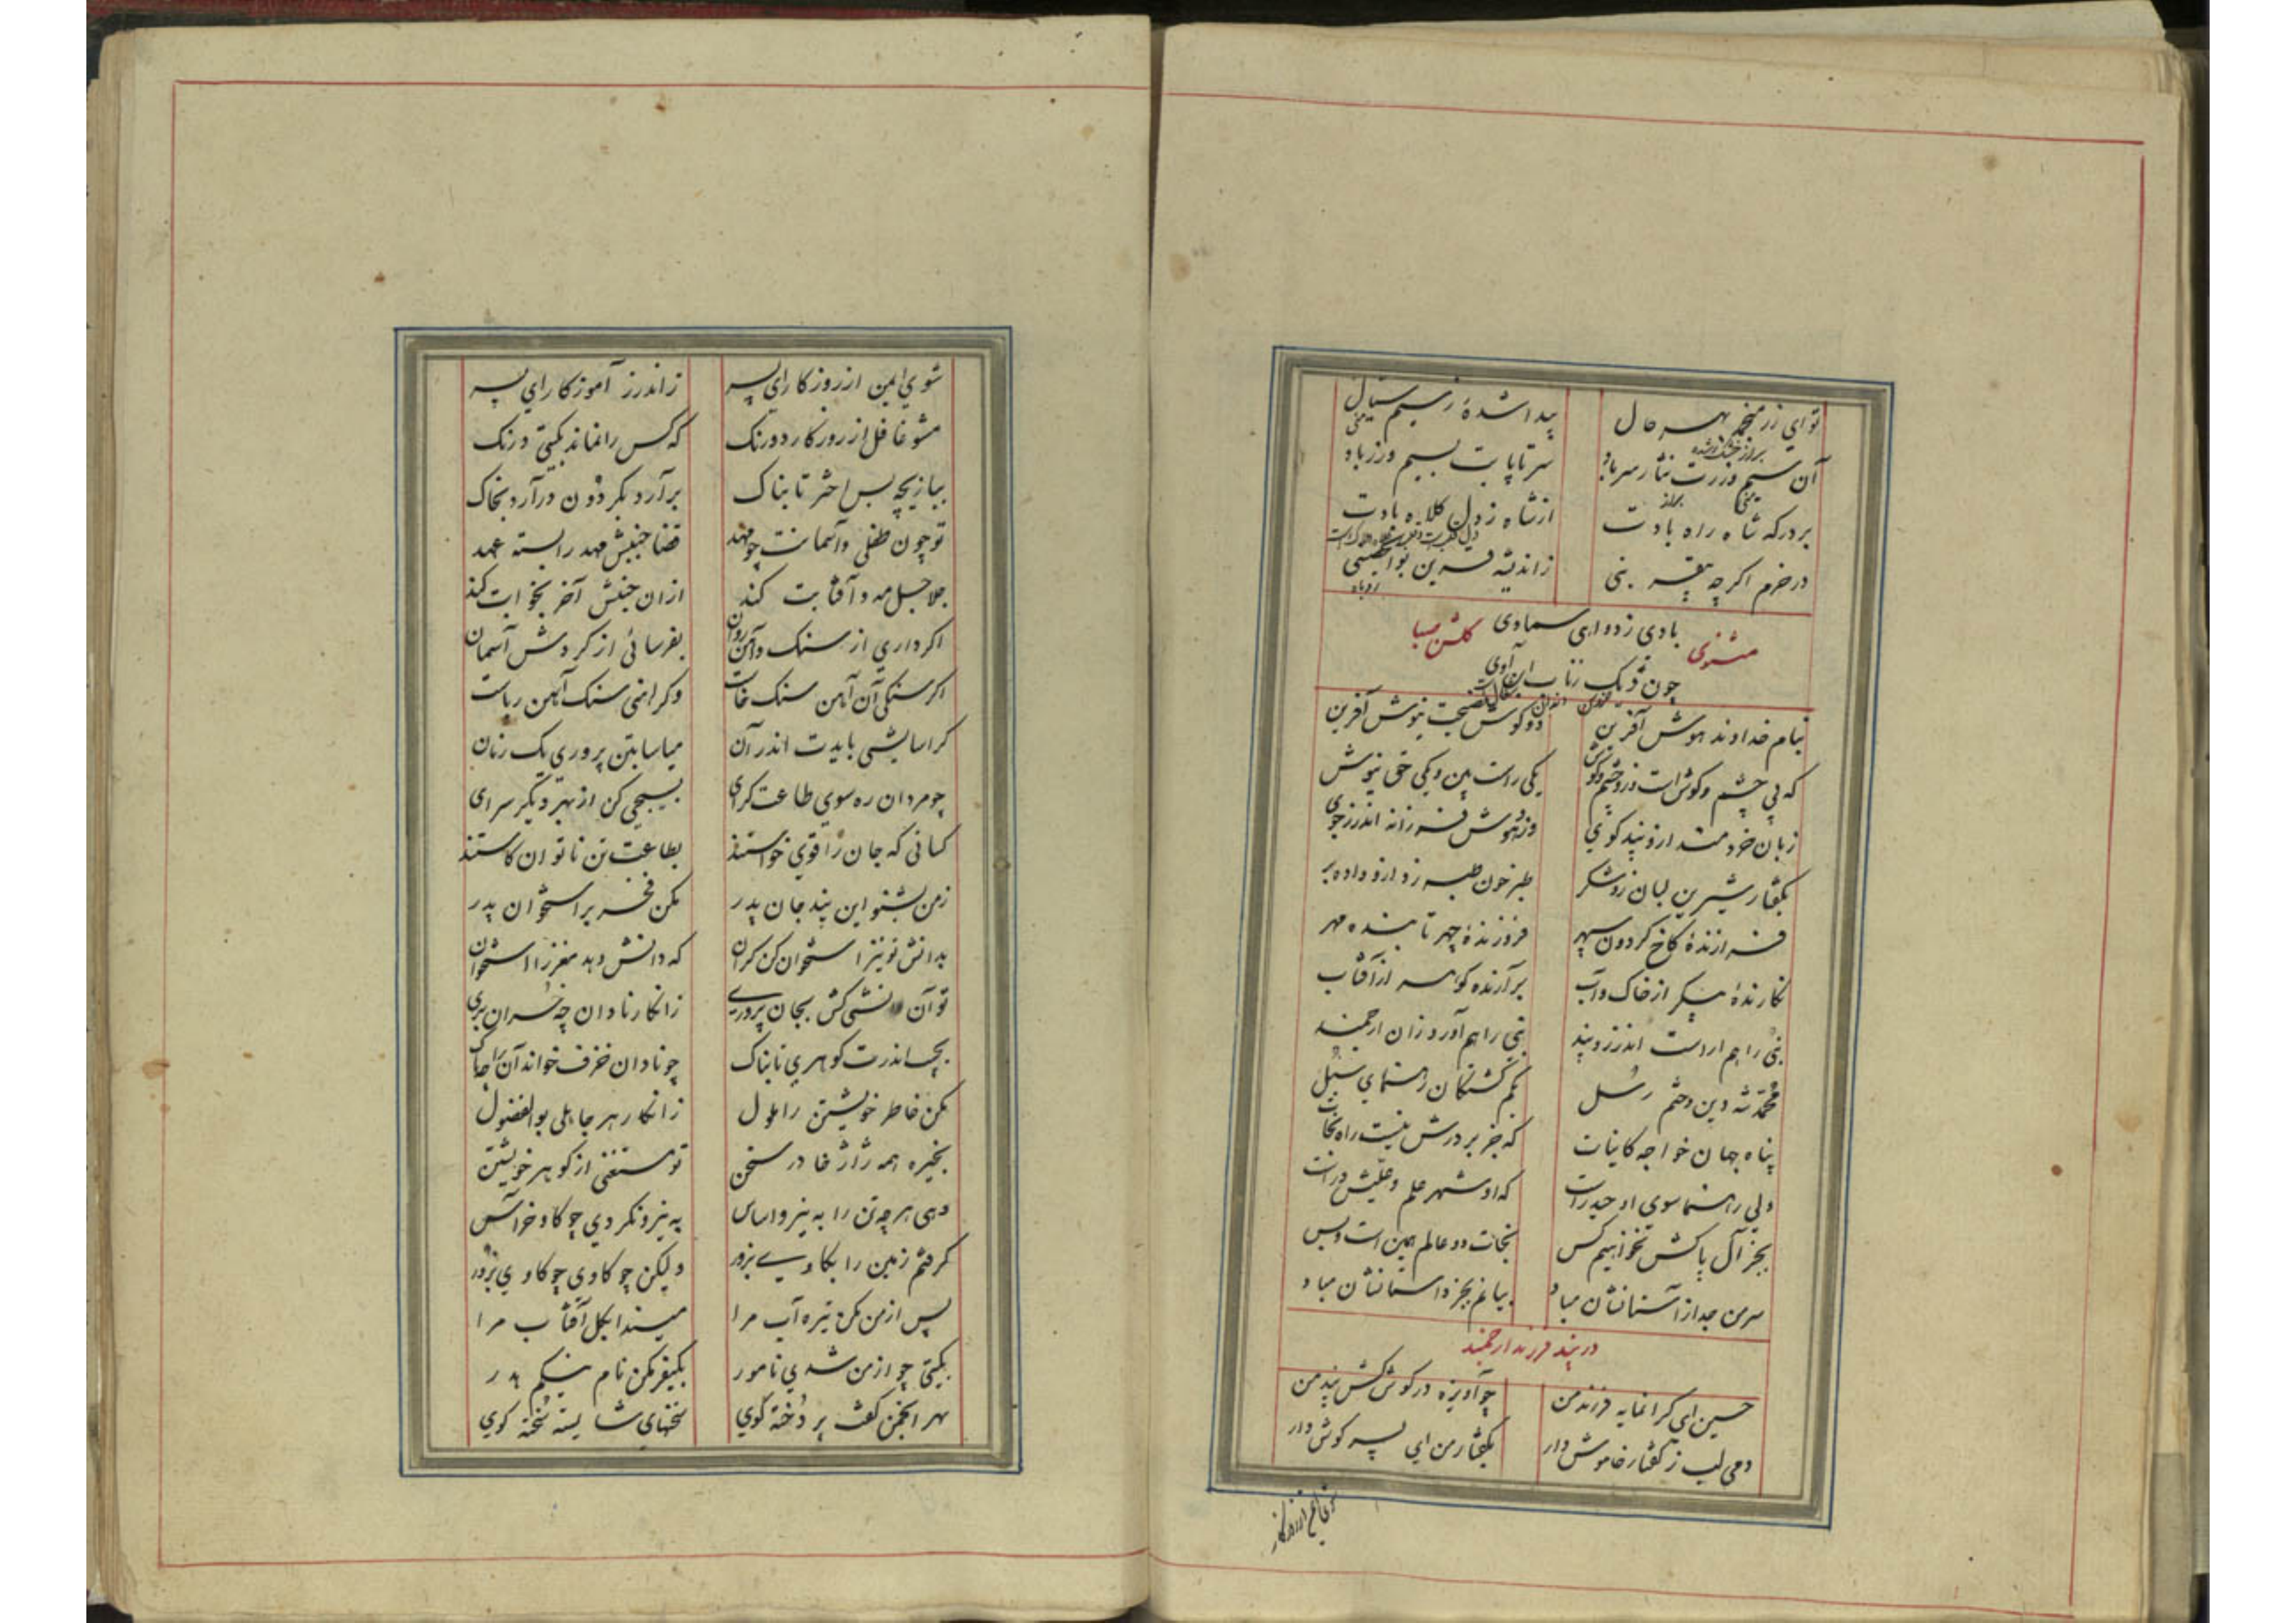 تو ای زر منجمد بهر حال پیدا شدۀ ز سیم سیال
آن سیم و زرت نثار سر باد سر تا پایت بسیم و زر باد
بر درکه شاه راه بادت از شاه زدل کلاه بادت
در خرم اکر چه بنی ز اندیشه بوالعجبی
مثنوی کلشن صبا
بنام خداوند هوش آفرین دو کوش نصیحت نیوش آفرین
که بی چشم و کوش است و زو چشم و کوش یکی راست بین و یکی حق نیوش
زبان خردمند ازو پند کوی وزو هوش فرزانه اندرز جوی
بکفتار شیرین لبان زو شکر طبر خون طبر زد ازو داده بر
فرازندۀ کاخ کردون سپهر فروزندۀ چهر تابنده مهر
نکارندۀ پیکر از خاک و آب برآرنده کوهر از آفتاب
نبی را هم اراست اندرز و پند نبی را هم آورد زان ارجمند
محمد شه دین و ختم رسل بکم کشتکان رهنمای سبل
پناه جهان خواجه کاینات که جز بر درش نیست راه نجات
ولی رهنما سوی او حیدر است که او شهر علم و علیش در است
بجز آل پاکش نخواهیم کس نجات دو عالم همین است و بس
سر من جدا ز آستانشان مباد بیانم بجز داستانشان مباد
در پند فرزند ارجمند
حسین ای کرانمایه فرزند من چو آویزه در کوش کش پند من
دمی لب ز کفتار خاموش دار بکفتار من ای پسر کوش دار
شوی ایمن از روزکار ای پسر ز اندرز آموزکار ای پسر
مشو غافل از روزکار دورنک که کس را نماند بکیتی درنک
ببازیچه بس اختر تابناک برآرد بکردون درآرد بخاک
تو چون طفلی و آسمانت چو مهد قضا جنبش مهد را بسته عهد
جلاجل مه و آفتابت کند ازان جنبش آخر بخوابت کند
اکر داری از سنک و آهن روان بفرسائی از کردش آسمان
اکر سنکی آن آهن سنک خاست وکر آهنی سنک آهن رباست
کر اسایشی بایدت اندر آن میاسا بتن پروری یک زمان
چو مردان ره سوی طاعت کرای بسیجی کن از بهر دیکر سرای
کسانی که جان را قوی خواستند بطاعت تن ناتوان کاستند
ز من بشنو این پند جان پدر مکن فخر بر استخوان پدر
بدانش تو نیز استخوان کن کران که دانش دهد مغز را استخوان
تو آن دانشی کش بجان پروری ز انکار نادان چه خسران بری
بچب اندرت کوهری تابناک چو نادان خزف خواند آن را چه باک
مکن خاطر خویشتن را ملول ز انکار هر جاهلی بوالفضول
بخیره همه ژاژ خا در سخن تو مستغنی از کوهر خویشتن
دهی هر چه تن را به نیرو اساس به نیرو نکردی چو کاو خراس
کرفتم زمین را بکاوی بزور ولیکن چو کاوی چو کاوی بزور
پس از من مکن تیره آب مرا میندا بکل آفتاب مرا
بکیتی چو از من شدی نامور بکیفر مکن نام نیکم هدر
بهر انجمن کفت پردخته کوی سخنهای شایسته سخته کوی